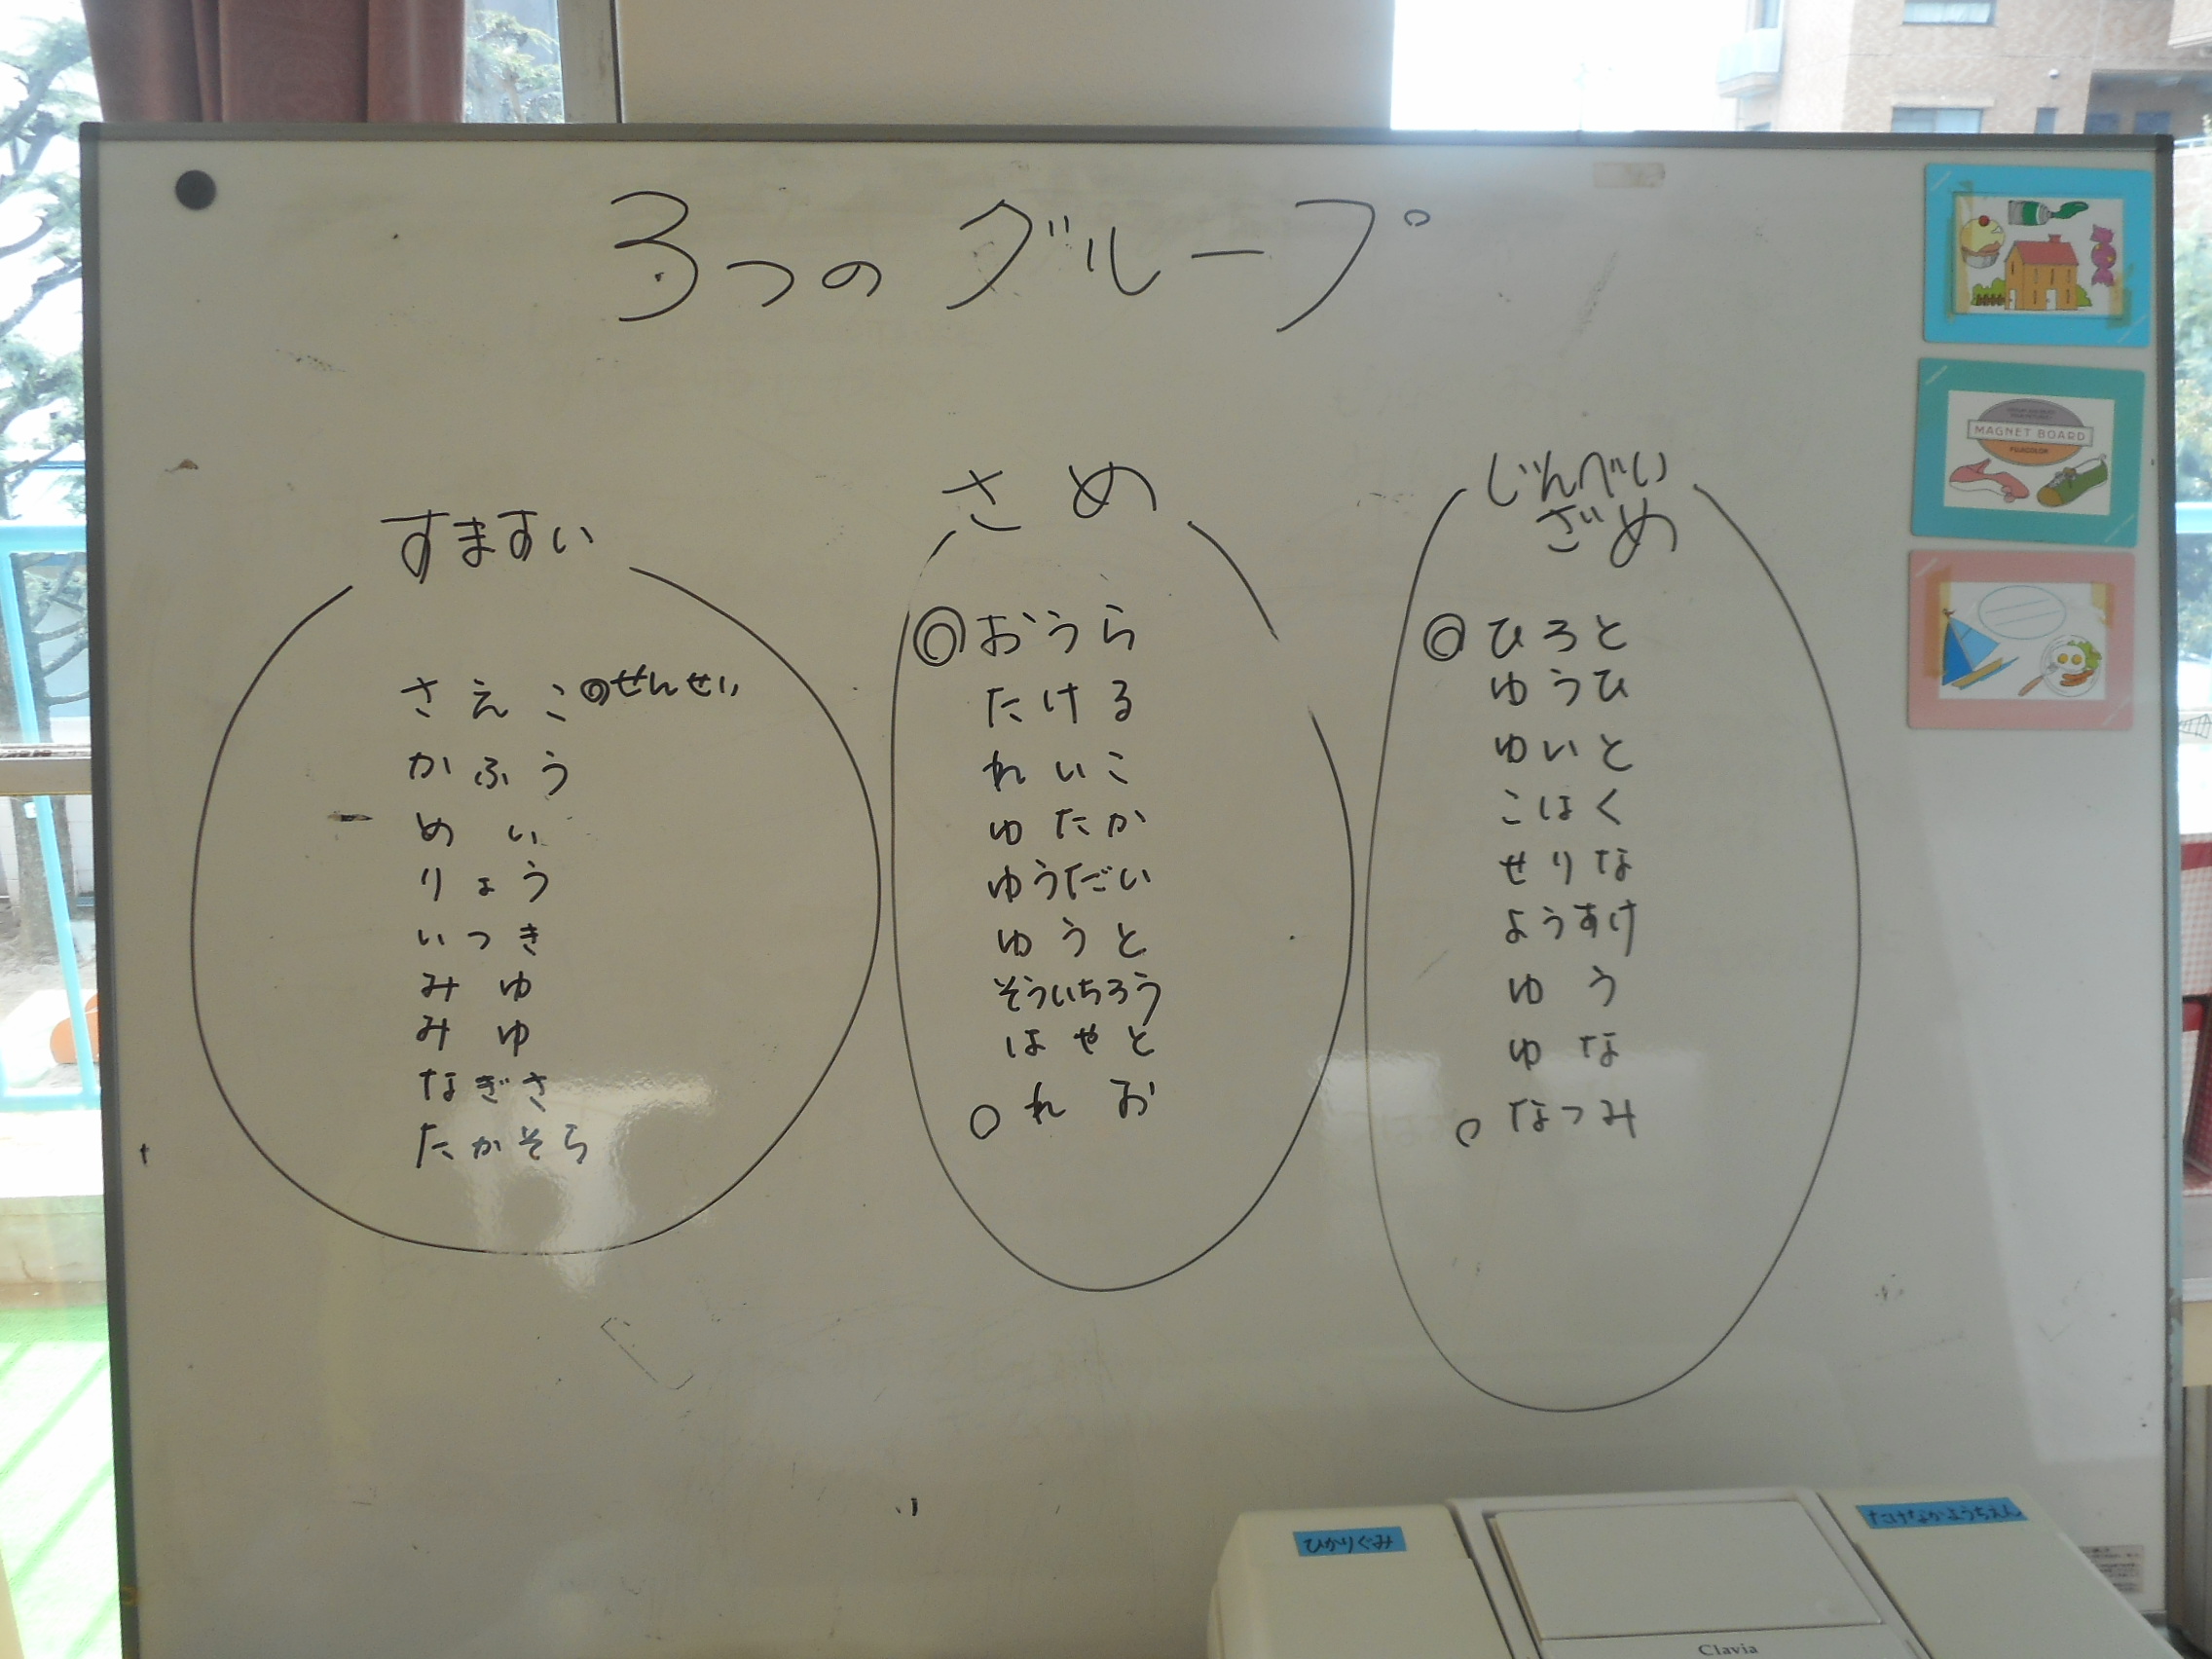 3つのグループ
すますい
さえこ◎せんせい
かふう
めい
りょう
いつき
みゆ
みゆ
なぎさ
たかそら
さめ
◎おうら
たける
れいこ
ゆたか
ゆうだい
ゆうと
そういちろう
はやと
○れお
じんべい
ざめ
◎ひろと
ゆうひ
ゆいと
こはく
せりな
ようすけ
ゆう
ゆな
○なつみ
MAGNET BOARD
FUJICOLOR
ひかりぐみ
たけなかようちえん
Clavia